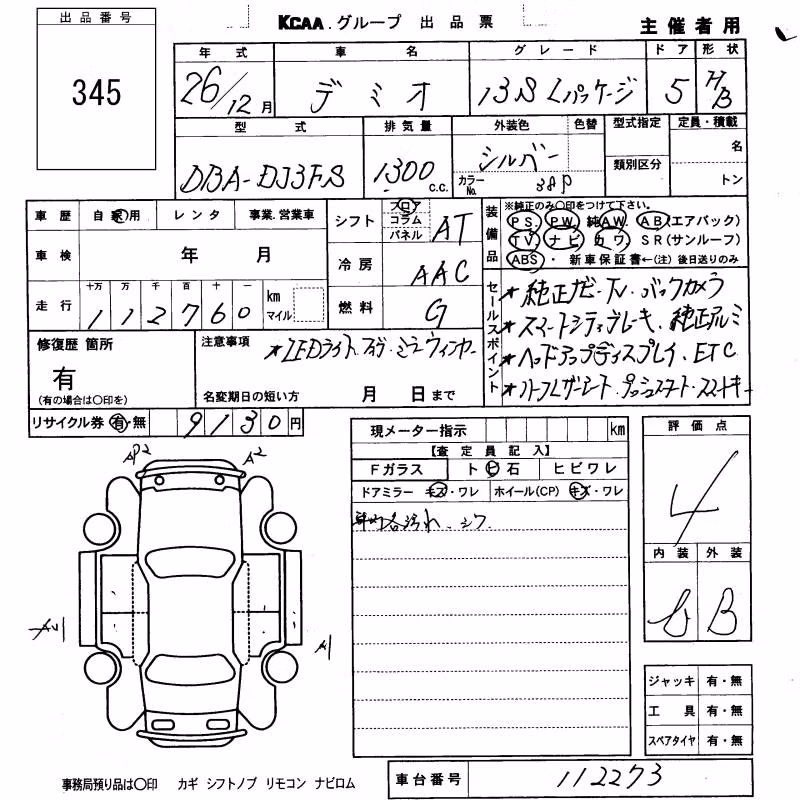 出品番号
345
KCAA.グループ 出品票
主催者用
年式 車名 グレード ドア 形状
26/12月 デミオ 13S Lパッケージ 5 H/B
型式 排気量 外装色 色替 型式指定 定員・積載
DBA-DJ3FS 1300 c.c. シルバー 名
カラーNo. 38P 類別区分 トン
車歴 自家用 レンタ 事業.営業車
シフト フロア コラム パネル AT
車検 年 月
冷房 AAC
走行 十万 万 千 百 十 一
112760 km マイル
燃料 G
装備品 ※純正のみ〇印をつけて下さい。
PS. PW 純AW. AB(エアバック)
TV. ナビ カワ. SR(サンルーフ)
ABS・ 新車保証書←(注) 後日送りのみ
セールスポイント
★純正ナビ・TV・バックカメラ
★スマートシティブレーキ. 純正アルミ
★ヘッドアップディスプレイ. ETC
★ハーフレザーシート・プッシュスタート・スマートキー
修復歴 箇所
有
(有の場合は〇印を)
注意事項
★LEDライト
名変期日の短い方 月 日まで
リサイクル券 有・無 9130円
現メーター指示 km
【査定員記入】
Fガラス トビ石 ヒビワレ
ドアミラー キズ・ワレ ホイール(CP) キズ・ワレ
車内各汚れ. シワ
評価点
4
内装 外装
B
AP2 A2
A1
ジャッキ 有・無
工具 有・無
スペアタイヤ 有・無
事務局預り品は〇印 カギ シフトノブ リモコン ナビロム
車台番号 112273